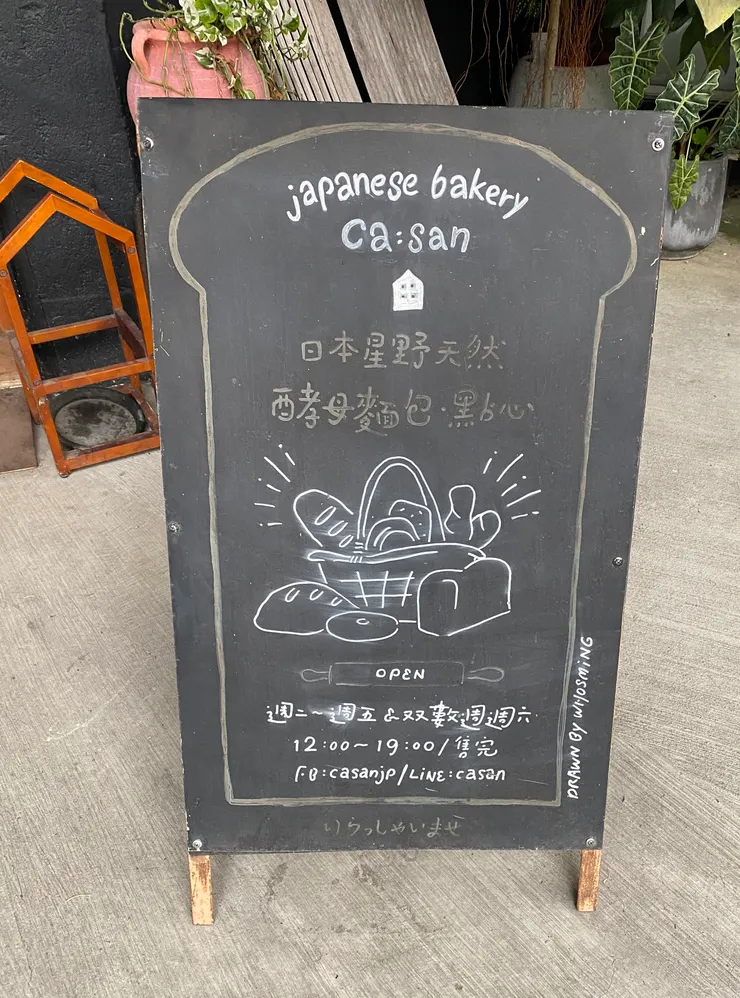 japanese bakery
ca:san
日本星野天然
酵母麵包·點心
OPEN
週二~週五&双數週週六
12:00~19:00/售完
FB:casanjp/LINE:casan
DRAWN BY WHOSMING
いらっしゃいませ